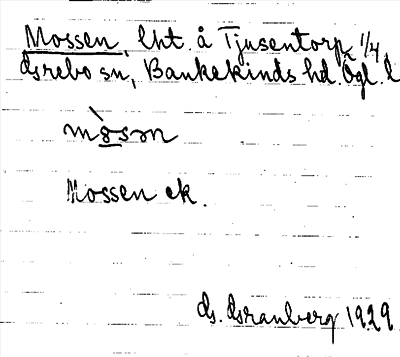 Mossen, lht. å Tjusentorp 1/4
Grebo sn, Bankekinds hd. Ögl. l
mòsən
Mossen ek.
G. Granberg 1929